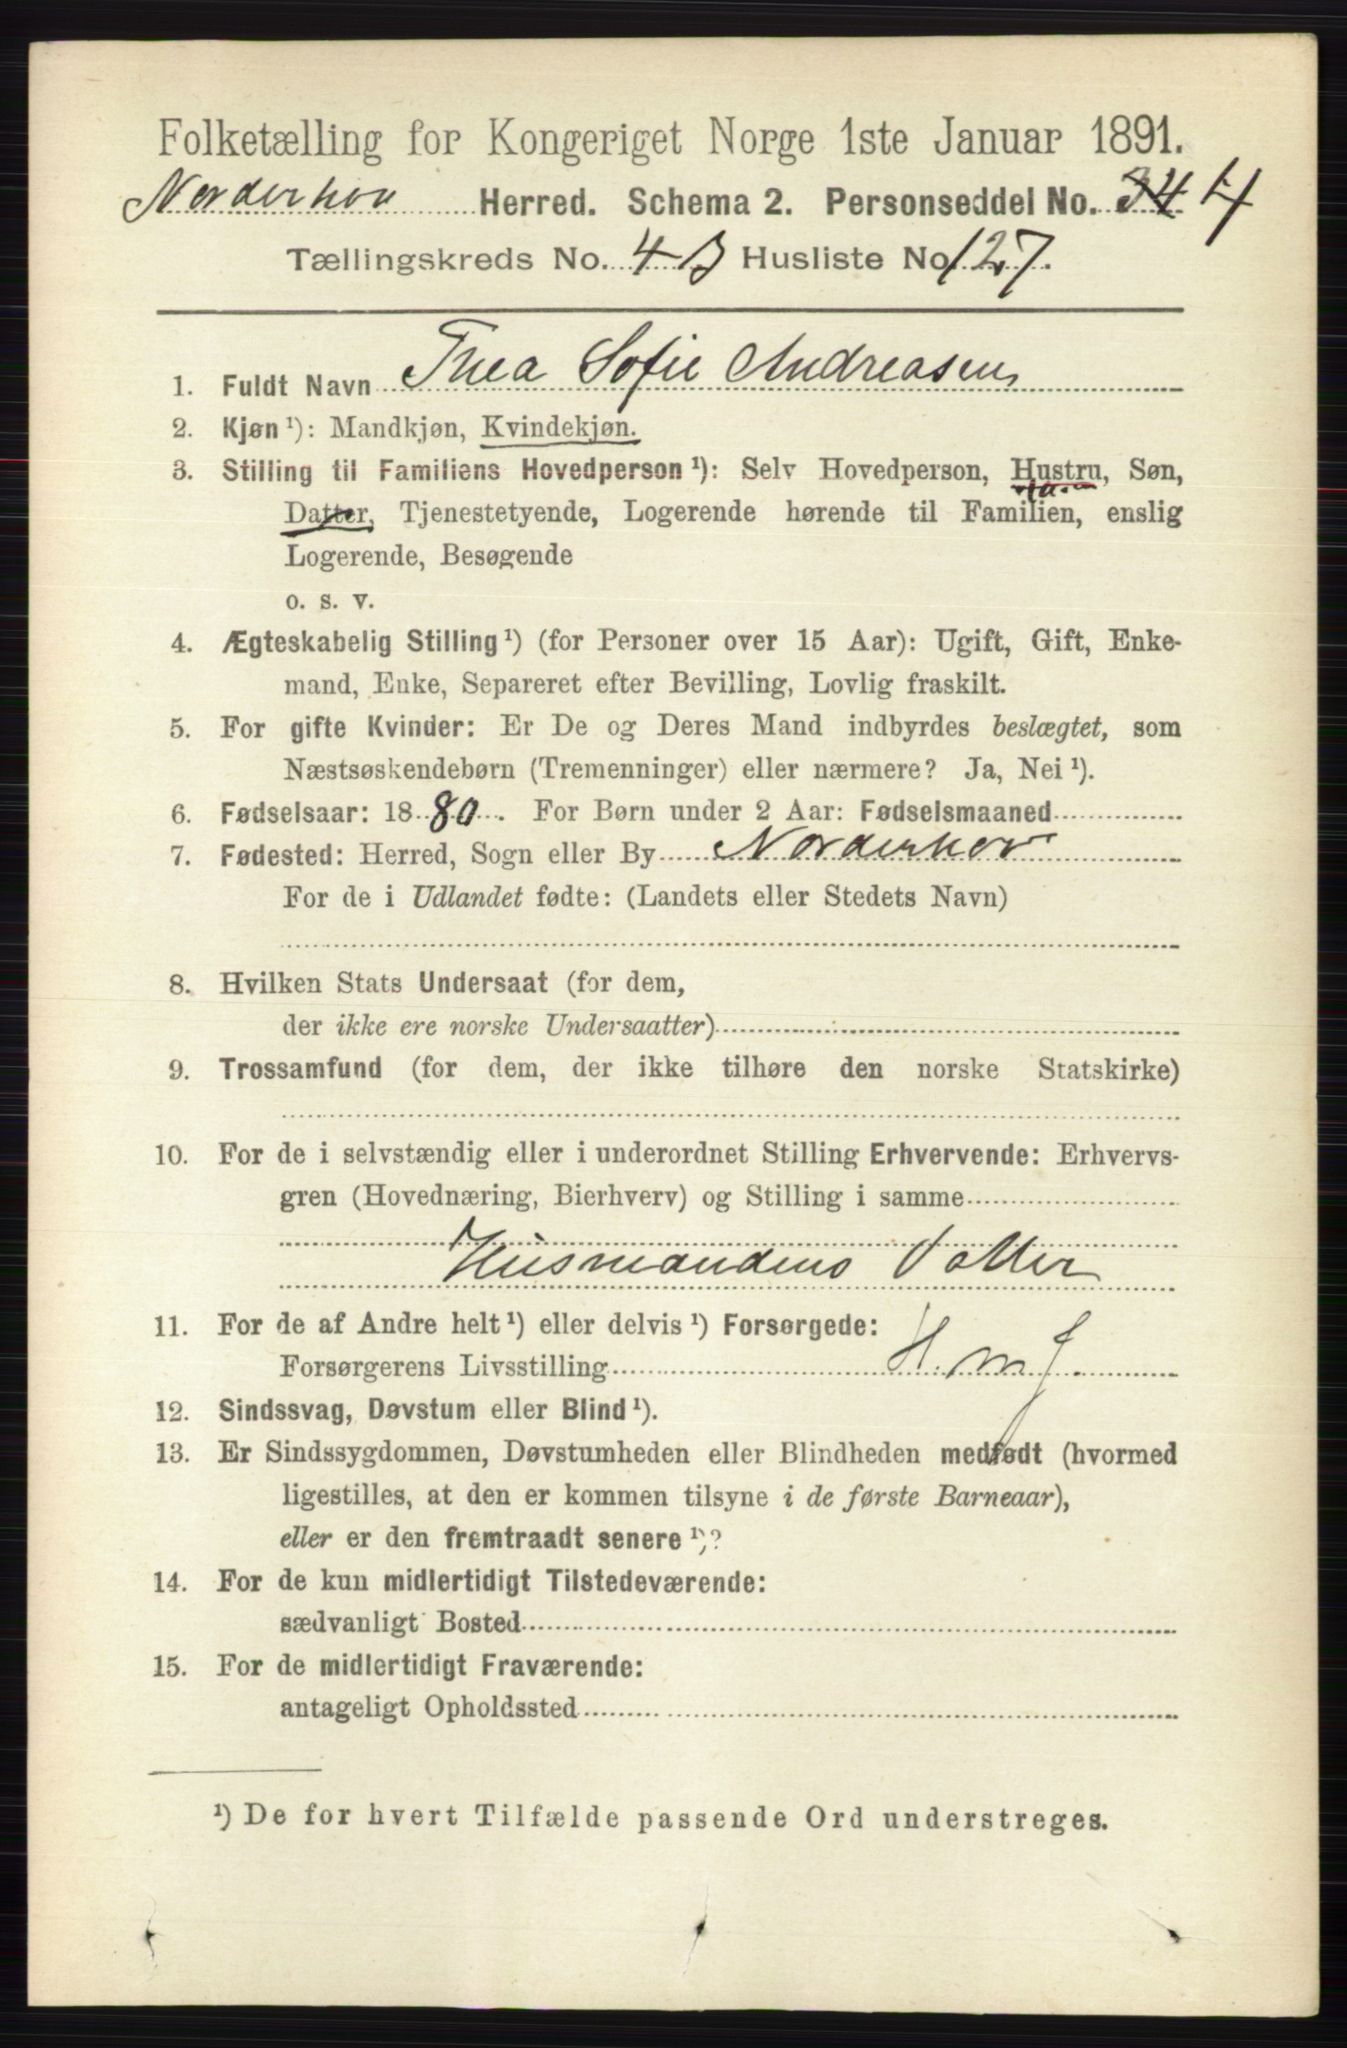 Folketælling for Kongeriget Norge 1ste Januar 1891.
Norderhov Herred. Schema 2. Personseddel No. 34 4
Tællingskreds No. 4 B Husliste No 127.
1. Fuldt Navn Thea Sofie Andreasen
2. Kjøn ¹): Mandkjøn, Kvindekjøn.
3. Stilling til Familiens Hovedperson ¹): Selv Hovedperson, Hustru, Søn,
Datter, Tjenestetyende, Logerende hørende til Familien, enslig
Logerende, Besøgende
o. s. v.
4. Ægteskabelig Stilling ¹) (for Personer over 15 Aar): Ugift, Gift, Enke-
mand, Enke, Separeret efter Bevilling, Lovlig fraskilt.
5. For gifte Kvinder: Er De og Deres Mand indbyrdes beslægtet, som
Næstsøskendebørn (Tremenninger) eller nærmere? Ja, Nei ¹).
6. Fødselsaar: 1880. For Børn under 2 Aar: Fødselsmaaned
7. Fødested: Herred, Sogn eller By Norderhov
For de i Udlandet fødte: (Landets eller Stedets Navn)
8. Hvilken Stats Undersaat (for dem,
der ikke ere norske Undersaatter)
9. Trossamfund (for dem, der ikke tilhøre den norske Statskirke)
10. For de i selvstændig eller i underordnet Stilling Erhvervende: Erhvervs-
gren (Hovednæring, Bierhverv) og Stilling i samme
Husmandens Datter
11. For de af Andre helt ¹) eller delvis ¹) Forsørgede:
Forsørgerens Livsstilling H. m J.
12. Sindssvag, Døvstum eller Blind ¹).
13. Er Sindssygdommen, Døvstumheden eller Blindheden medfødt (hvormed
ligestilles, at den er kommen tilsyne i de første Barneaar),
eller er den fremtraadt senere ¹)?
14. For de kun midlertidigt Tilstedeværende:
sædvanligt Bosted
15. For de midlertidigt Fraværende:
antageligt Opholdssted
¹) De for hvert Tilfælde passende Ord understreges.